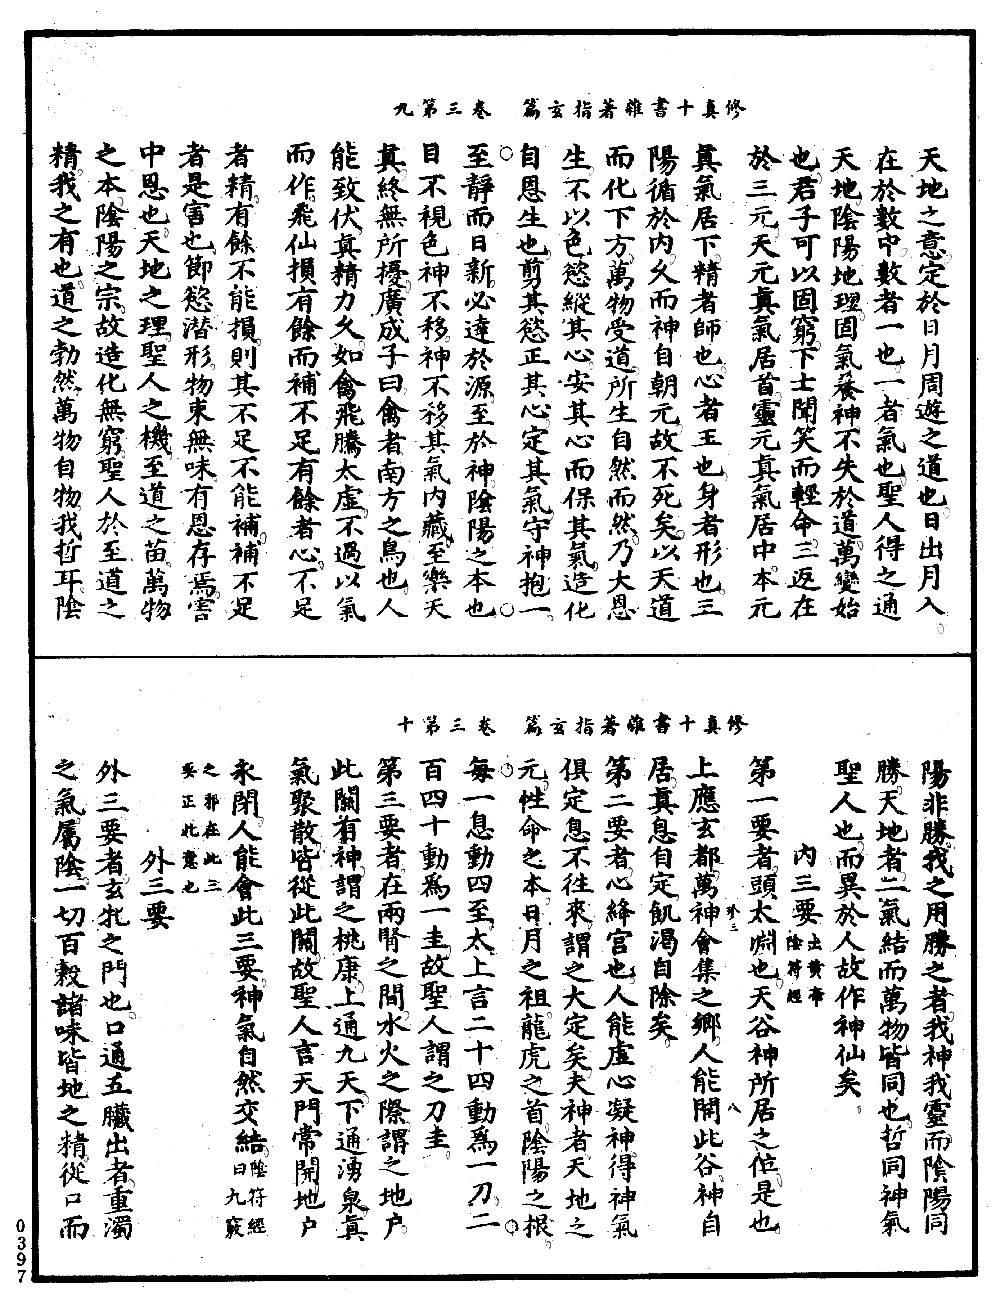 修真十書雜著指玄篇　卷三第九
天地之意定於日月周遊之道也日出月入
在於數中數者一也一者氣也聖人得之通
天地陰陽地理固氣養神不失於道萬變始
也君子可以固窮下士聞笑而輕命三返在
於三元天元真氣居首靈元真氣居中本元
真氣居下精者師也心者王也身者形也三
陽循於內久而神自朝元故不死矣以天道
而化下方萬物受道所生自然而然乃大恩
生不以色慾縱其心安其心而保其氣造化
自恩生也剪其慾正其心定其氣守神抱一
至靜而日新必達於源至於神陰陽之本也
目不視色神不移神不移其氣內藏至樂天
真終無所擾廣成子曰禽者南方之鳥也人
能致伏真精力久如禽飛騰太虛不過以氣
而作飛仙損有餘而補不足有餘者心不足
者精有餘不能損則其不足不能補補不足
者是害也節慾潛形物束無味有恩存焉害
中恩也天地之理聖人之機至道之苗萬物
之本陰陽之宗故造化無窮聖人於至道之
精我之有也道之勃然萬物自物我哲耳陰
修真十書雜著指玄篇　卷三第十
陽非勝我之用勝之者我神我靈而陰陽同
勝天地者二氣結而萬物皆同也哲同神氣
聖人也而異於人故作神仙矣
內三要出黃帝陰符經
第一要者頭太淵也天谷神所居之位是也
上應玄都萬神會集之鄉人能開此谷神自
居真息自定飢渴自除矣
第二要者心絳宮也人能虛心凝神得神氣
俱定息不往來謂之大定矣夫神者天地之
元性命之本日月之祖龍虎之首陰陽之根
每一息動四至太上言二十四動為一刀二
百四十動為一圭故聖人謂之刀圭
第三要者在兩腎之間水火之際謂之地戶
此關有神謂之桃康上通九天下通湧泉真
氣聚散皆從此關故聖人言天門常開地戶
永閉人能會此三要神氣自然交結陰符經曰九竅
之邪在此三要正此意也
外三要
外三要者玄牝之門也口通五臟出者重濁
之氣屬陰一切百穀諸味皆地之精從口而
0397